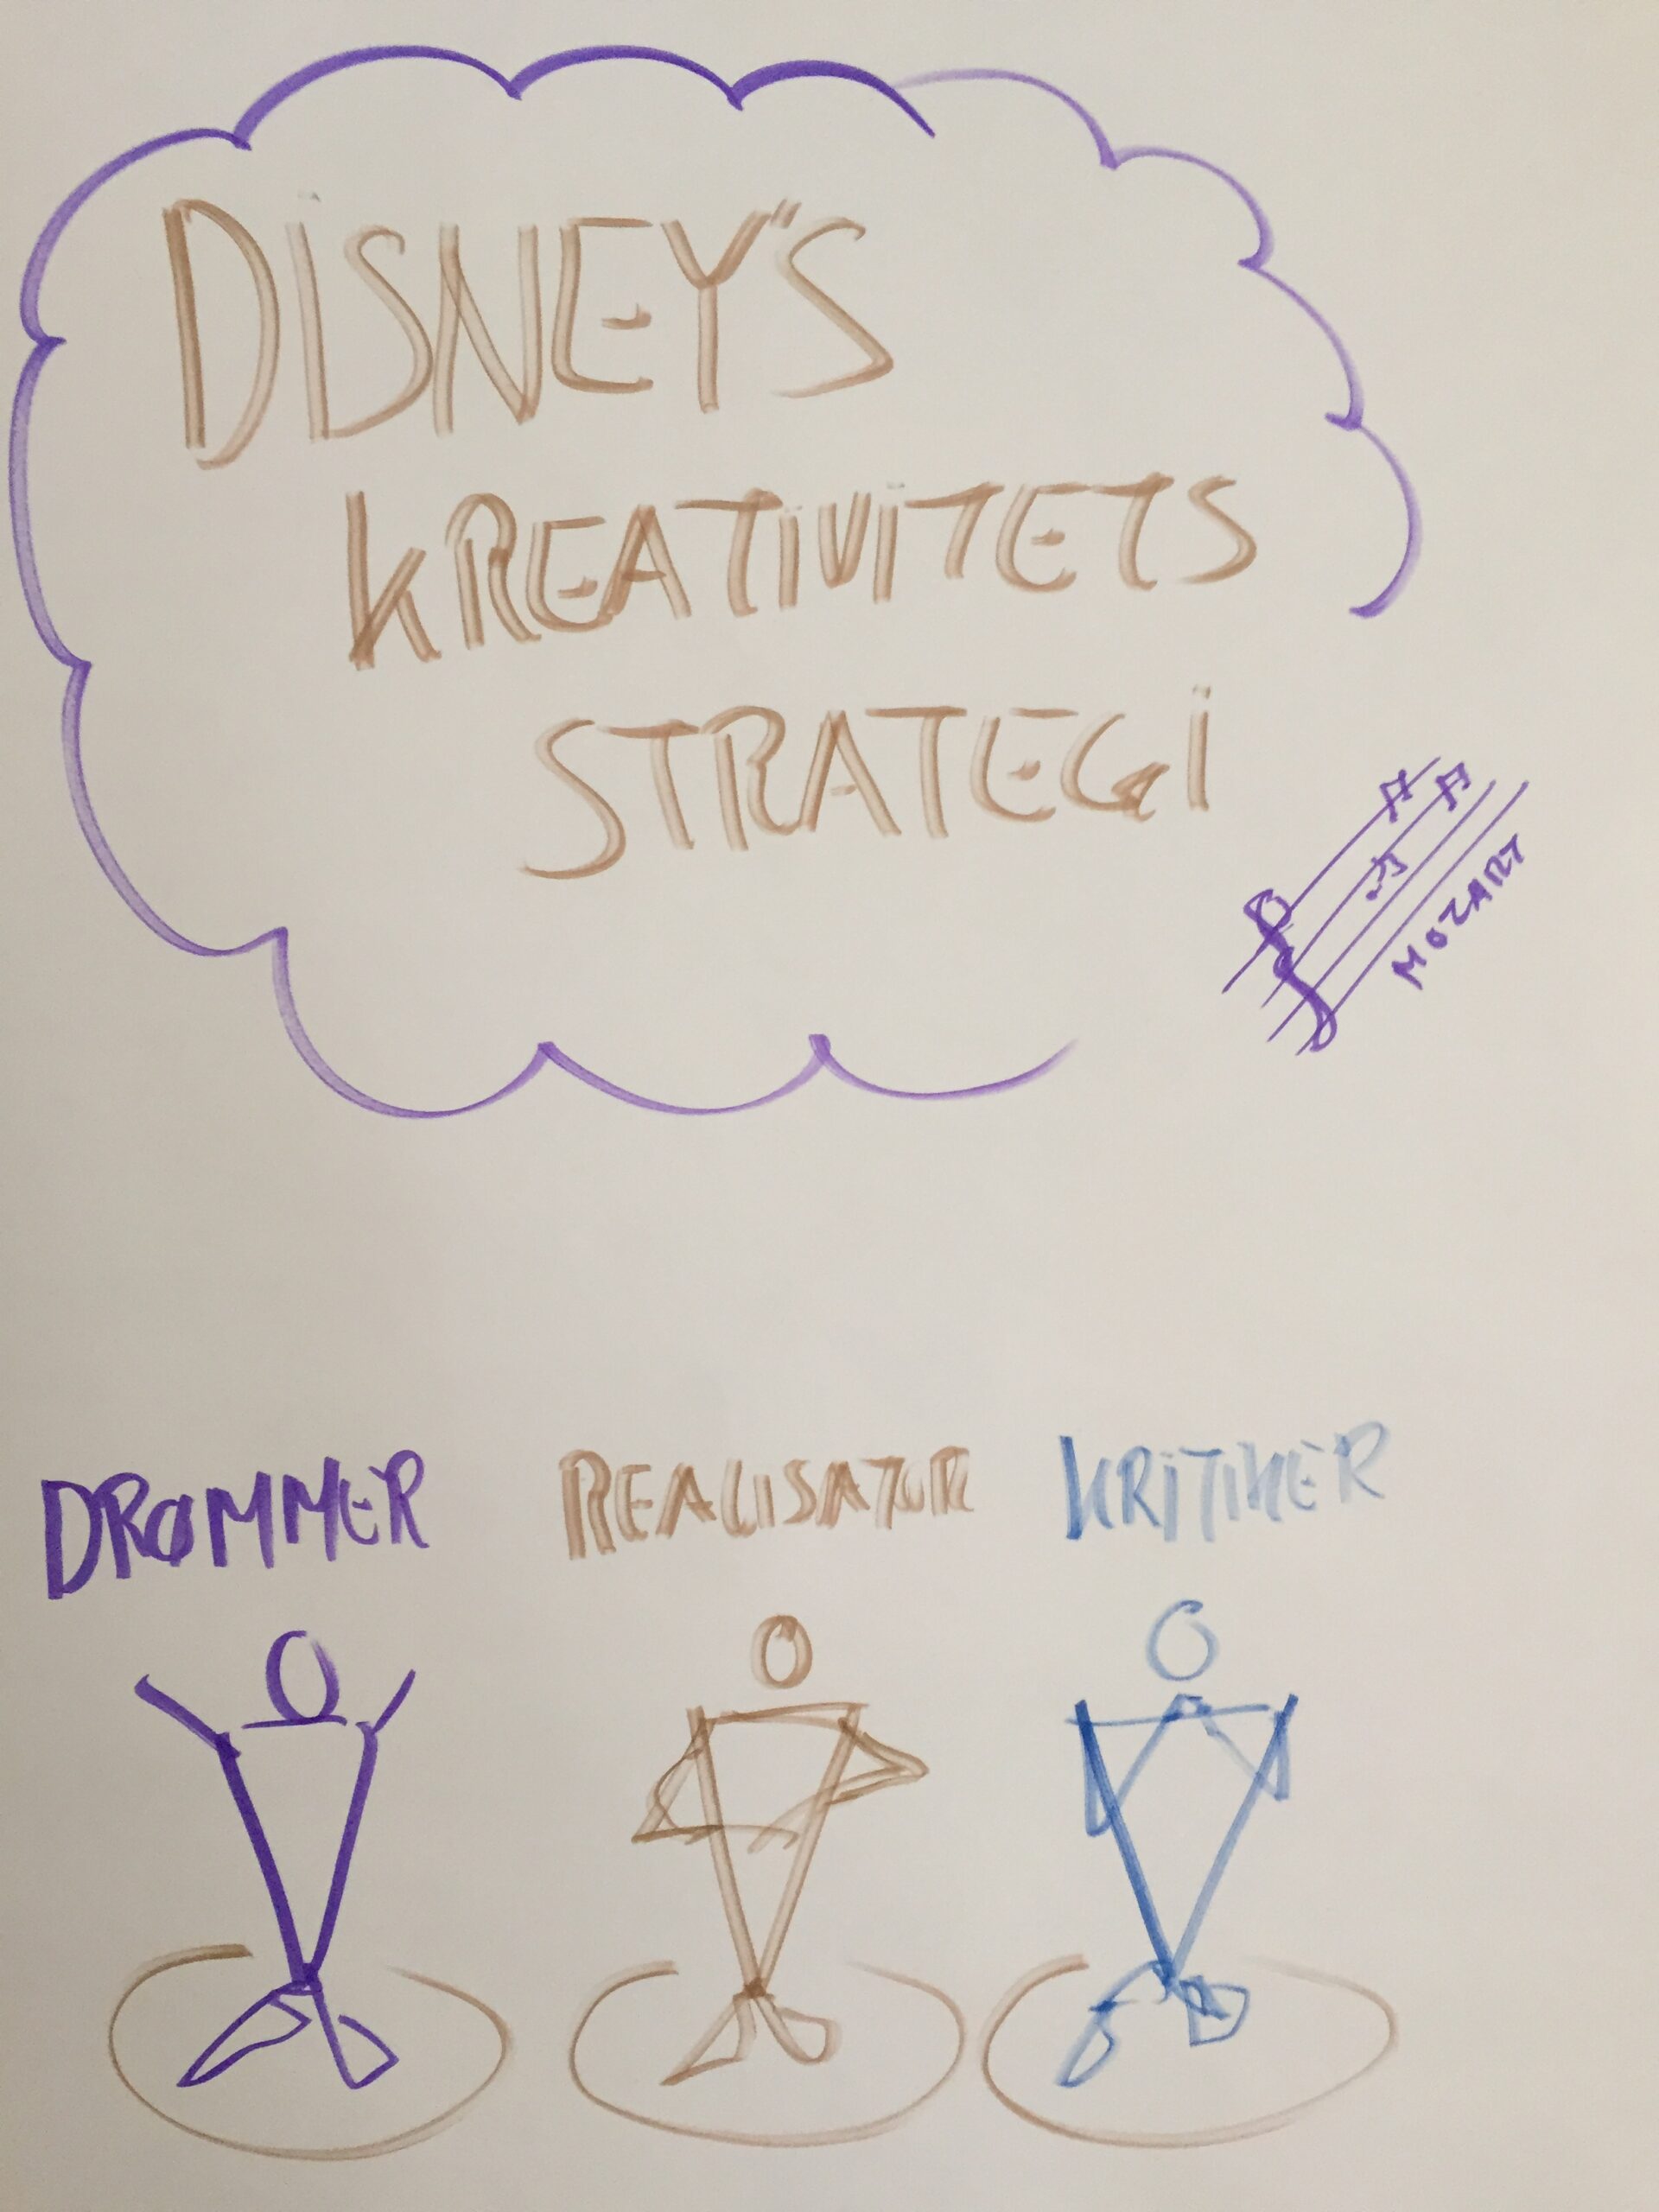 DISNEY'S
KREATIVITETS
STRATEGI
MOZART
DRØMMER REALISATOR KRITIKER